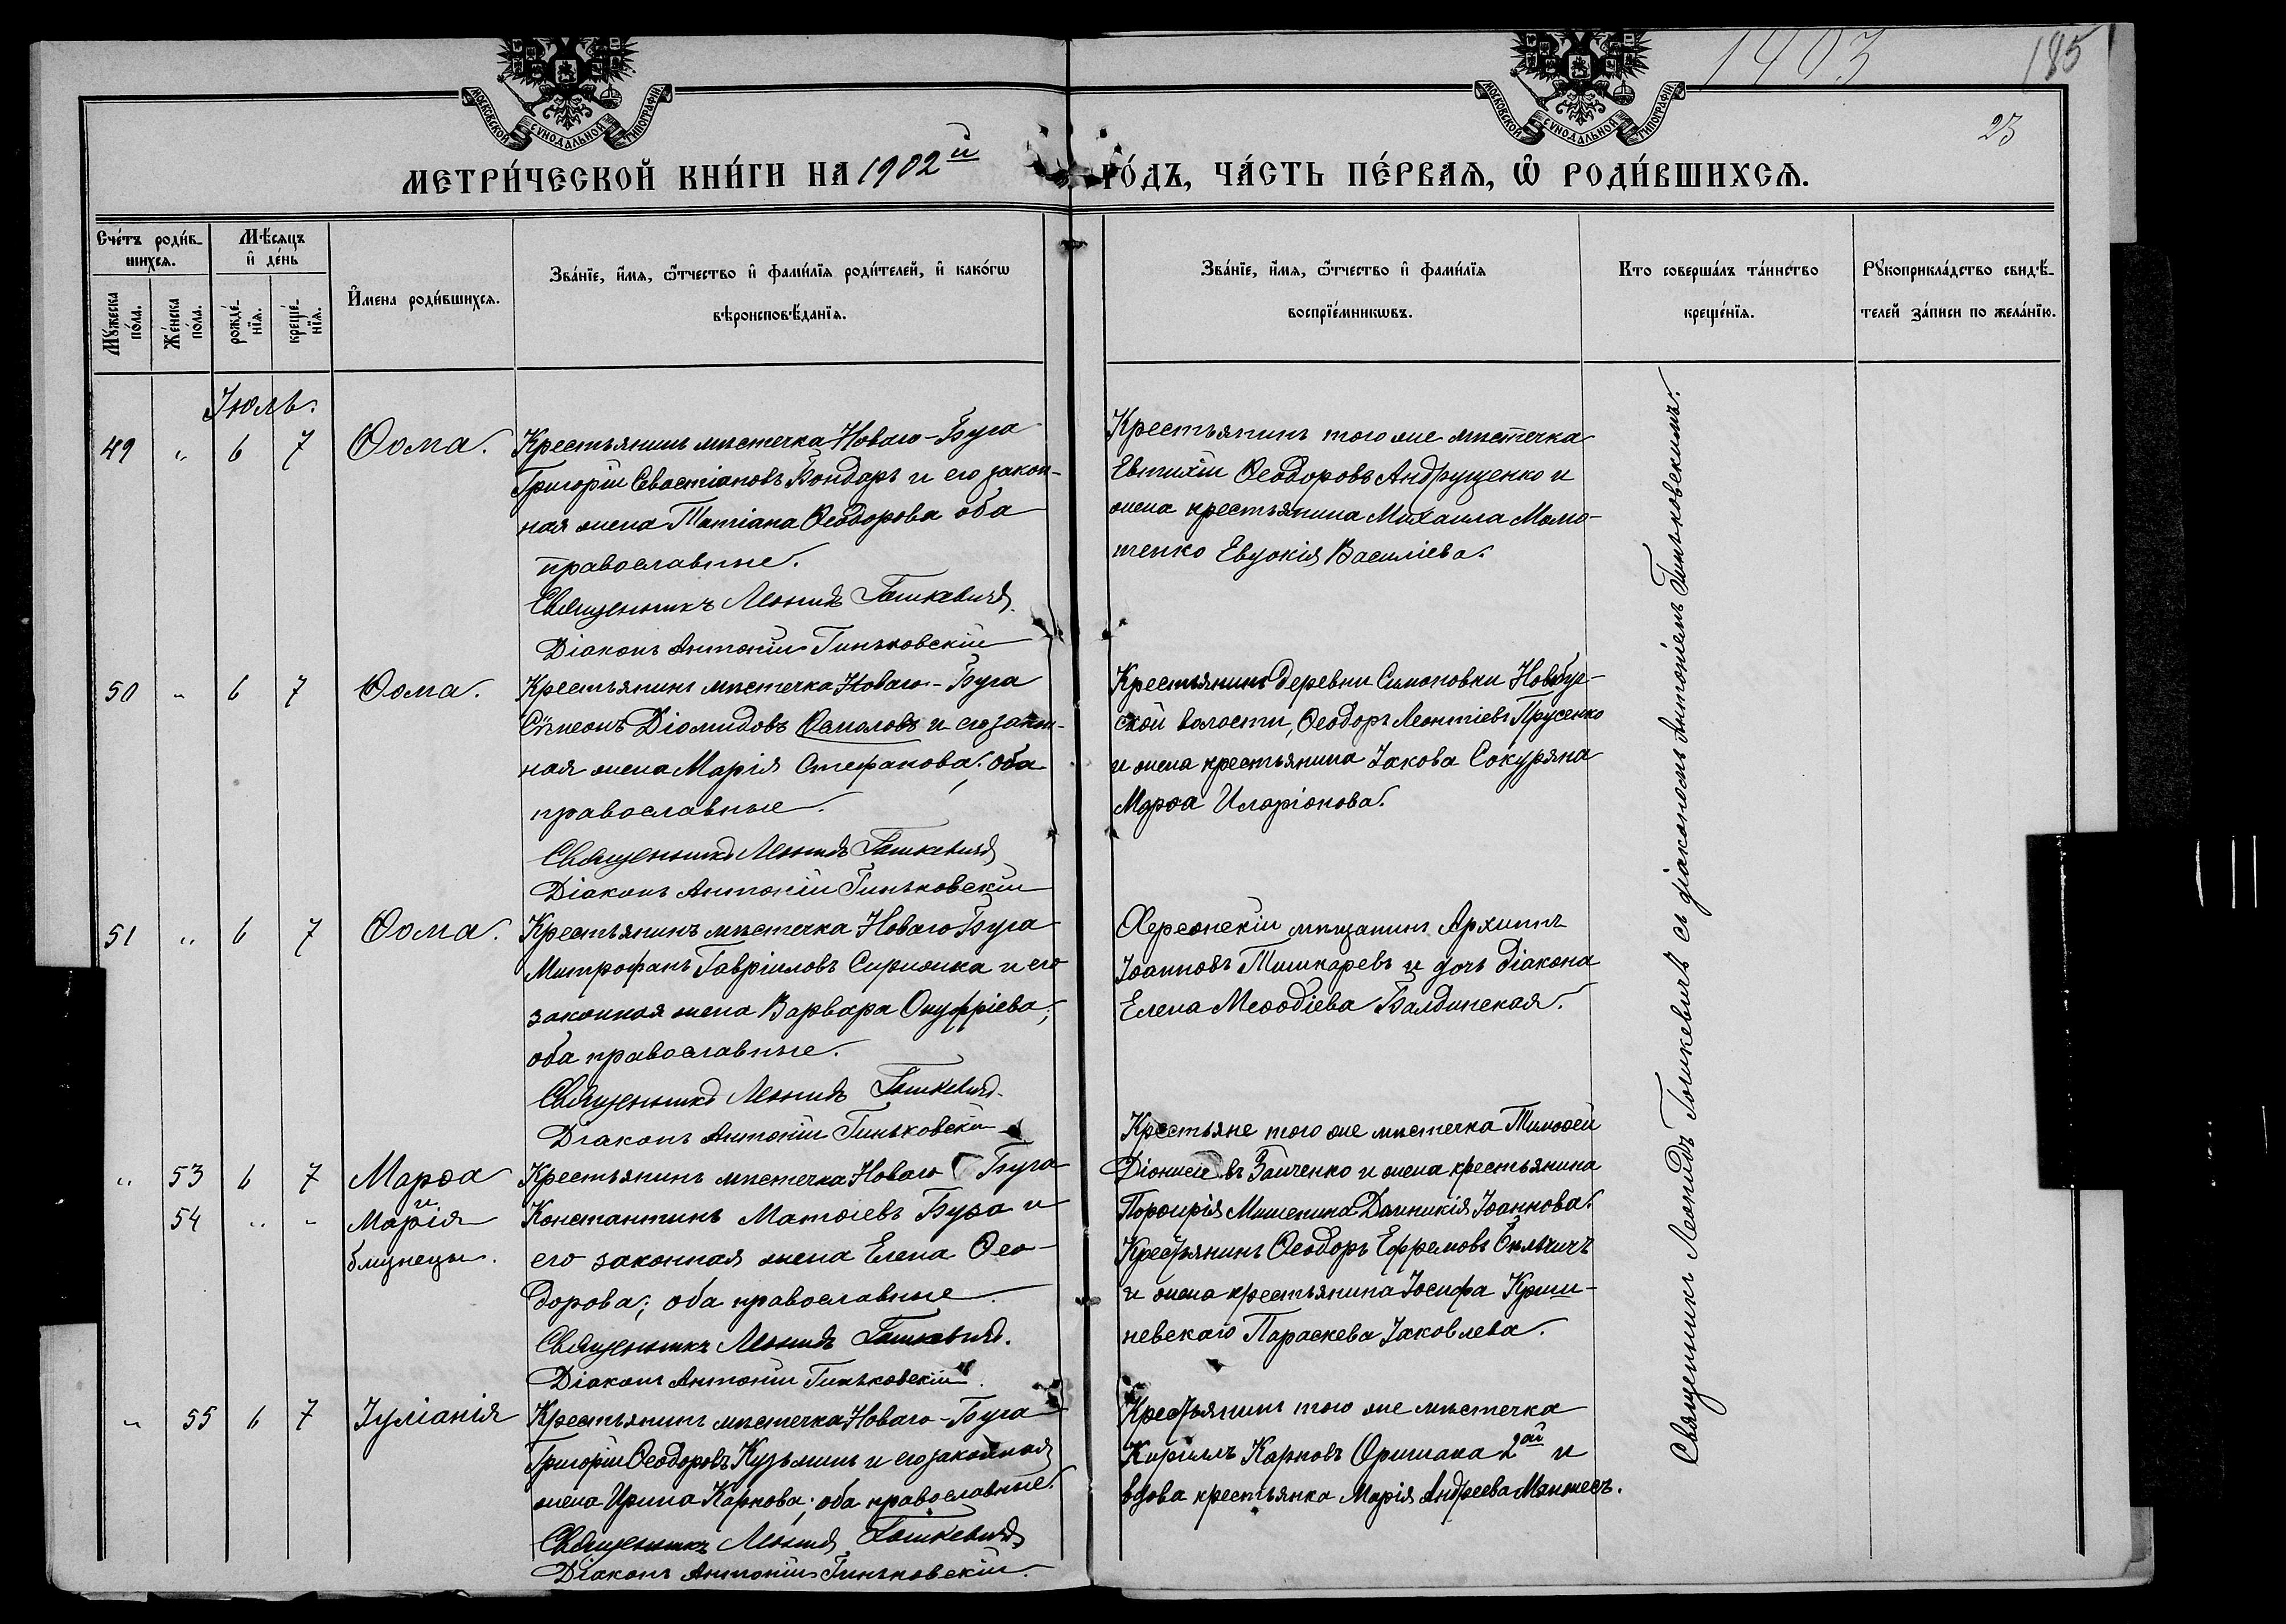 1403
185
23
МОСКОВСКОЙ СѴНОДАЛЬНОЙ ТИПОГРАФІИ
МОСКОВСКОЙ СѴНОДАЛЬНОЙ ТИПОГРАФІИ
МЕТРИ́ЧЕСКОЙ КНИ́ГИ НА 1902й
ГО́ДЪ, ЧА́СТЬ ПЕ́РВАѦ, Ѡ҆ РОДИ́ВШИХСѦ.
Сче́тъ роди́в-
шихсѧ.
Мѣ́сѧцъ
и҆ де́нь
Мꙋ́жеска
по́ла.
Же́нска
по́ла.
рожде́-
нїѧ.
креще́-
нїѧ.
И҆мена роди́вшихсѧ.
Зва́нїе, и҆́мѧ, ѻ҆́тчество и҆ фами́лїѧ роди́телей, и҆ како́гѡ
вѣроисповѣ́данїѧ.
Зва́нїе, и҆́мѧ, ѻ҆́тчество и҆ фами́лїѧ
воспрїе́мникѡвъ.
Кто соверша́лъ та́инство
креще́нїѧ.
Рꙋкоприкла́дство свидѣ́-
телей за́писи по жела́нїю.
Іюль.
49 " 6 7 Ѳома.
Крестьянинъ мѣстечка Новаго-Буга
Григорій Севастіановъ Бондарь и его закон-
ная жена Татіана Ѳеодорова оба
православные.
Священникъ Леонидъ Гошкевичъ.
Діаконъ Антоній Гиньковскій
Крестьянинъ того же мѣстечка
Евтихій Ѳеодоровъ Андрущенко и
жена крестьянина Михаила
Евдокія Василіева.
50 " 6 7 Ѳома.
Крестьянинъ мѣстечка Новаго-Буга
Сѵмеонъ Діомидовъ и его закон-
ная жена Марія Стефанова; оба
православные.
Священникъ Леонидъ Гошкевичъ
Діаконъ Антоній Гиньковскій
Крестьянинъ деревни Симоновки Новобуг-
ской волости, Ѳеодоръ Леонтіевъ Прусенко
и жена крестьянина Іакова Сокуряна
Марѳа Иларіонова.
51 " 6 7 Ѳома.
Крестьянинъ мѣстечка Новаго Буга
Митрофанъ Гавріиловъ и его
законная жена Варвара Онуфріева;
оба православные.
Священникъ Леонидъ Гошкевичъ.
Діаконъ Антоній Гиньковскій
Херсонскій мѣщанинъ Архиппъ
Іоанновъ Тишкаревъ и дочь діакона
Елена Меѳодіева Балдинская.
" 53 6 7 Марѳа
и
54 " " Марія
близнецы.
Крестьянинъ мѣстечка Новаго Буга
Константинъ Матѳіевъ Буза и
его законная жена Елена Ѳео-
дорова; оба православные.
Священникъ Леонидъ Гошкевичъ.
Діаконъ Антоній Гиньковскій.
Крестьяне того же мѣстечка Тимоѳей
Діонисіевъ Заиченко и жена крестьянина
Порфирія Мишенина Домникія Іоаннова.
Крестьянинъ Ѳеодоръ Ефремовъ
и жена крестьянина Іосифа Криши-
невскаго Параскева Іаковлева.
" 55 6 7 Іуліанія
Крестьянинъ мѣстечка Новаго-Буга
Григорій Ѳеодоровъ Кузьминъ и его законная
жена Ирина Карпова; оба православные.
Священникъ Леонидъ Гошкевичъ
Діаконъ Антоній Гиньковскій.
Крестьянинъ того же мѣстечка
Кириллъ Карповъ 2ой и
вдова крестьянка Марія Андреева
Священникъ Леонидъ Гошкевичъ съ діакономъ Антоніемъ Гиньковскимъ.